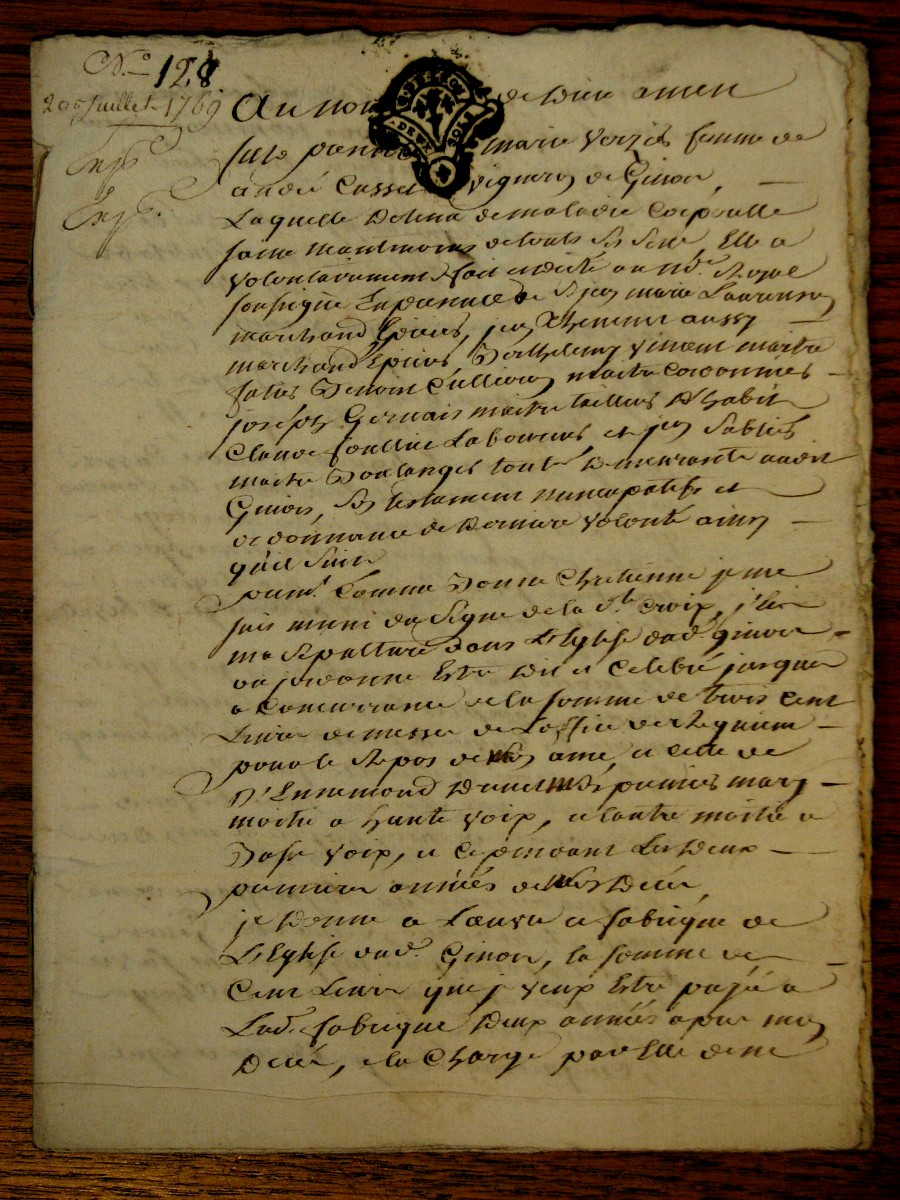 N.° 128
20e Juillet 1769
Exp.e
Exp.e
Au nom de Dieu amen
fut presente marie Verziés femme de
andré Cusset vigneron de Givors,
Laquelle detenu de maladie Corporelle
saine neantmoins de touts ses sens, Elle a
volontairement fait et dicté au no.re Royal
soussigné En presence de Sr jean marie Laurenson
marchand Epicier, jean Thevenet aussy
marchand Epicier, Berthelemy vincent maitre
Benoit maitre Cordonnier
joseph Germais maitre tailleur D'habit
Claude foullieu Laboureur, et jean Sablier
maitre Boulanger touts Demeurants audit
Givors, son testament nuncupatif et
ordonnance de Derniere volonté ainsy
qu'il suit
prem.t Comme Bonne Chretienne je me
suis muni du signe de la S.te Croix, j'Elis
ma sepulture dans L'Eglise dud. Givors
ou j'ordonne Estre Dit et Celebré jusques
a Concurrance de la somme de trois cent
Livres de messes de L'office de Requiem
pour le Repos de mon ame, et celle de
S.r Ennemond Brunet mon premier mary
moitié a haute voix, et l'autre moitié a
Basse voix, et ce pendant Les Deux
premieres années de mon Decés,
je Donne a L'oeuvre et fabrique de
L'Eglise dud. Givors, la somme de
Cent Livres que je veux Estre payée a
Lad. fabrique Deux années apres mon
Decés, a la Charge par Elle de me